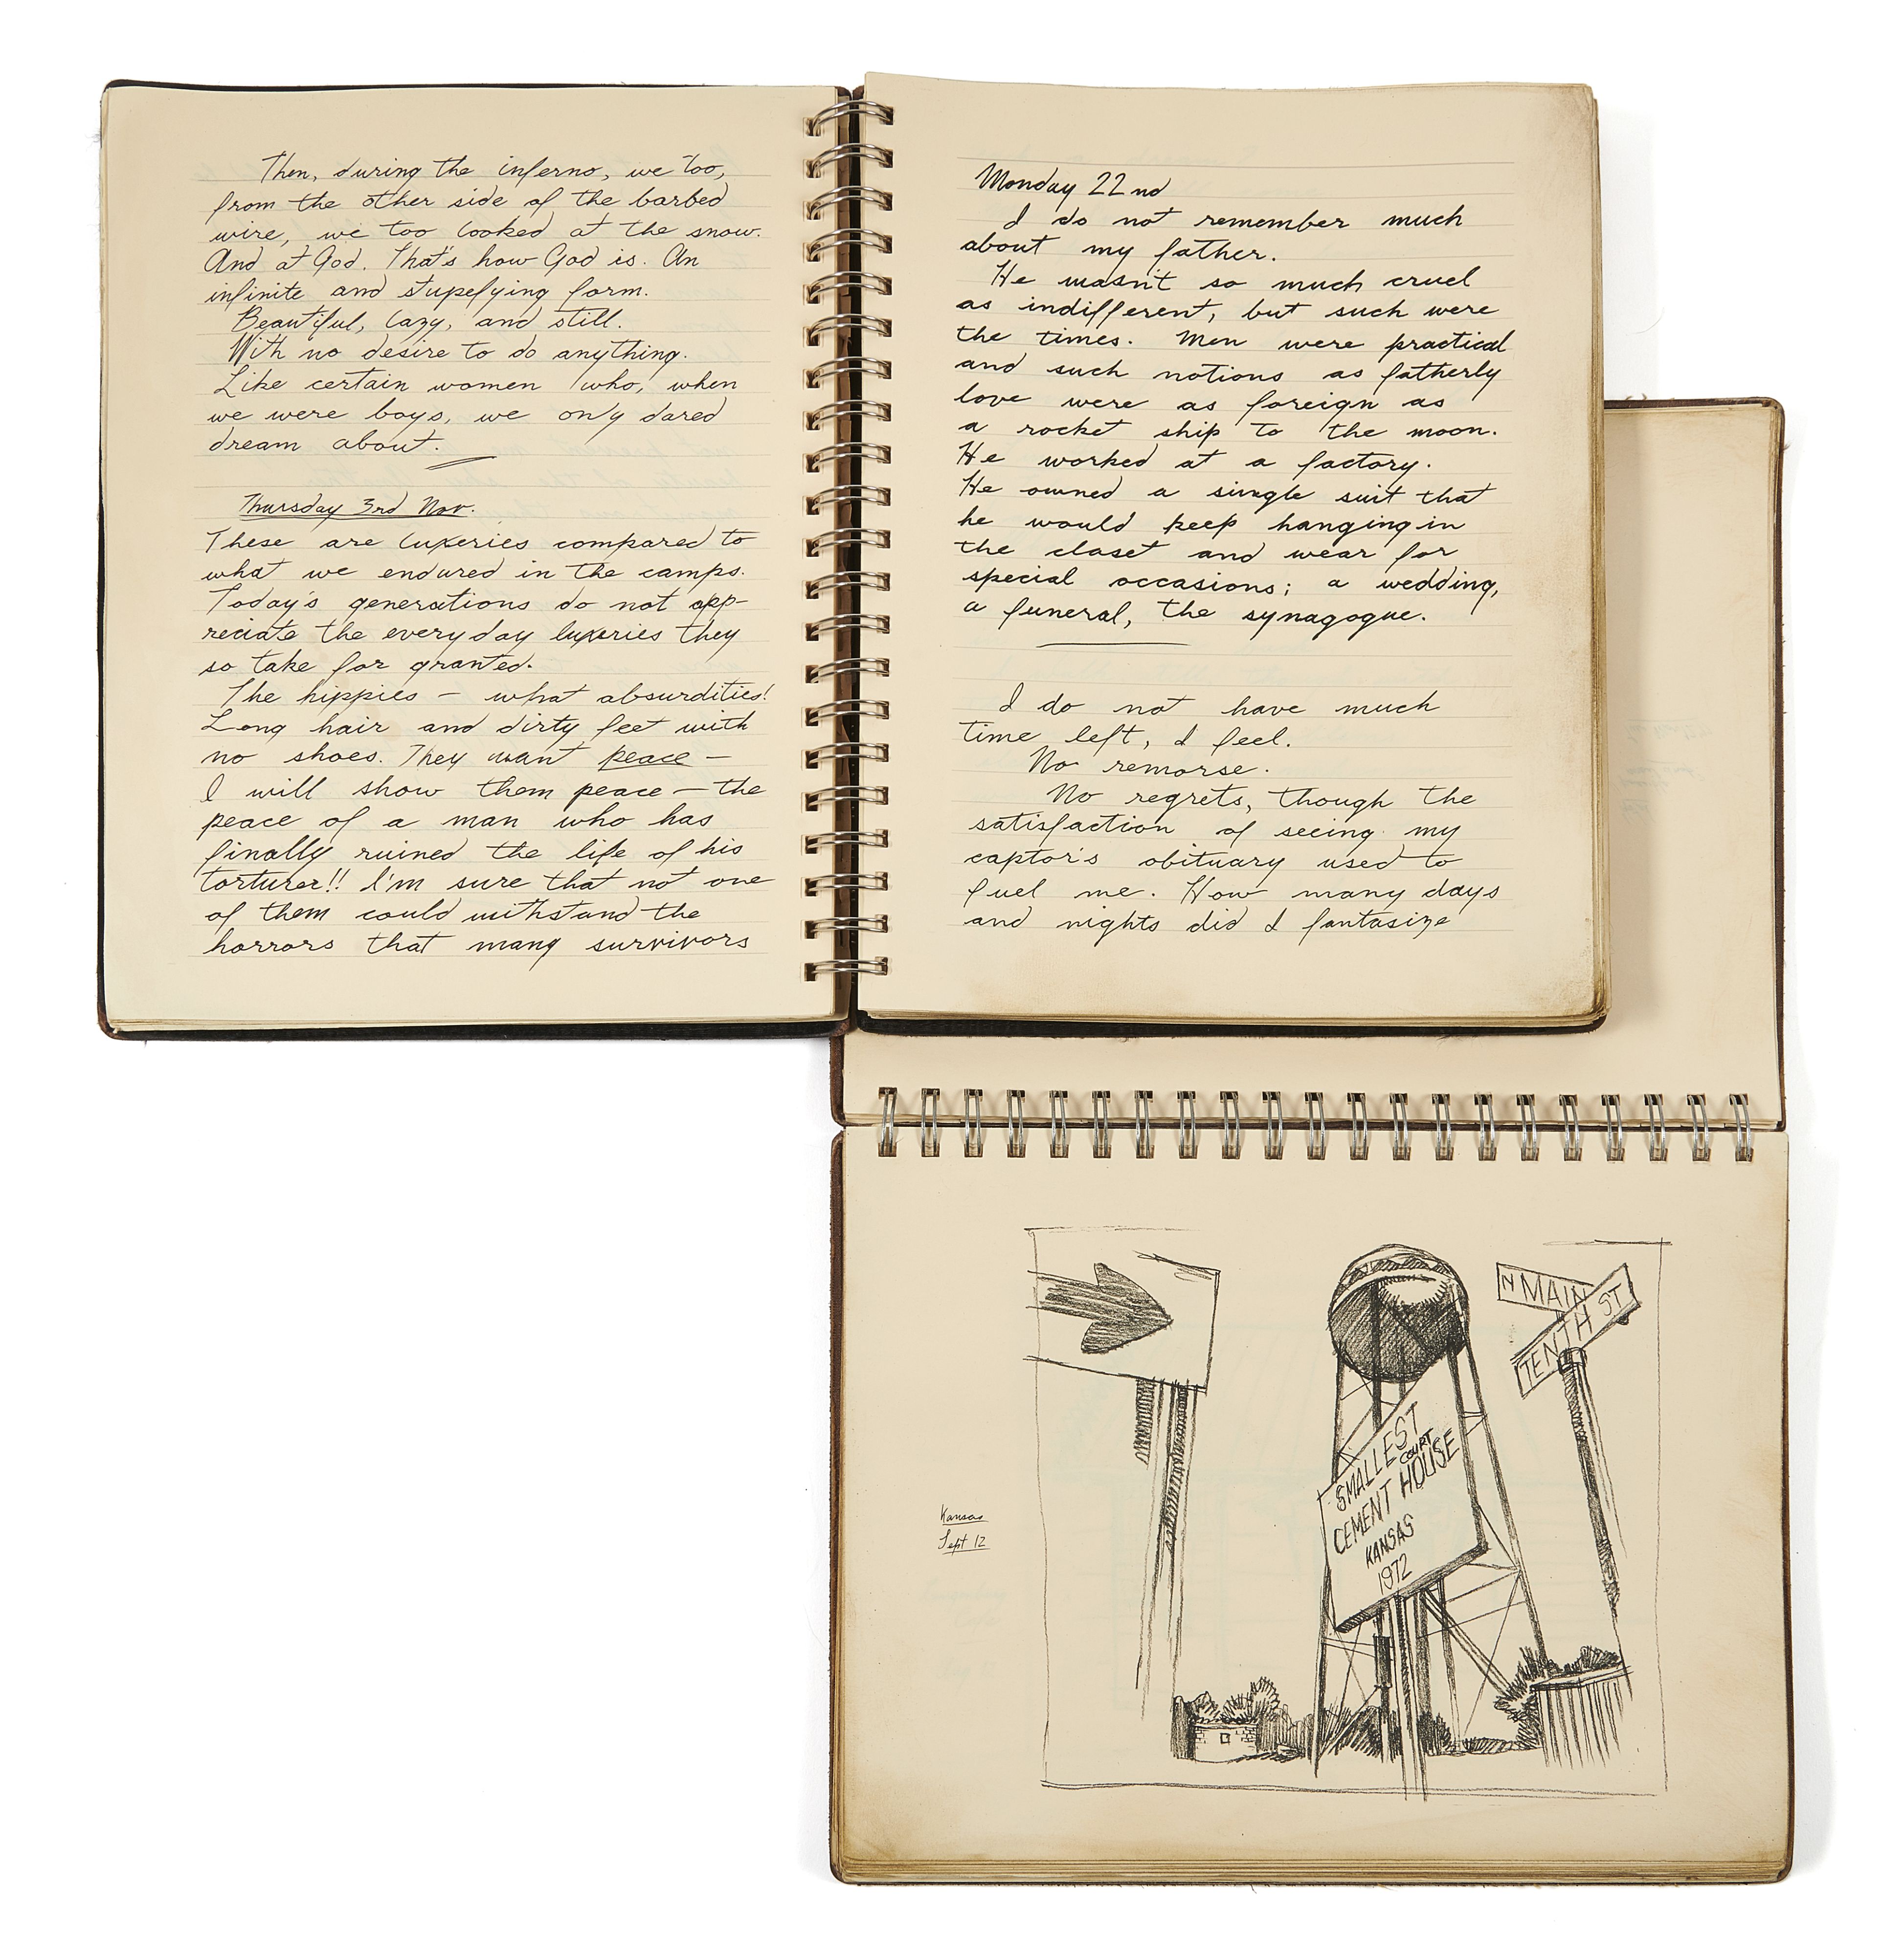 Then, during the inferno, we too,
from the other side of the barbed
wire, we too looked at the snow.
And at God. That's how God is. An
infinite and stupefying form.
Beautiful, lazy, and still.
With no desire to do anything.
Like certain women who, when
we were boys, we only dared
dream about.
Thursday 3rd Nov.
These are luxeries compared to
what we endured in the camps.
Today's generations do not app-
reciate the everyday luxeries they
so take for granted.
The hippies - what absurdities!
Long hair and dirty feet with
no shoes. They want peace -
I will show them peace - the
peace of a man who has
finally ruined the life of his
torturer!! I'm sure that not one
of them could withstand the
horrors that many survivors
Monday 22nd
I do not remember much
about my father.
He wasn't so much cruel
as indifferent, but such were
the times. Men were practical
and such notions as fatherly
love were as foreign as
a rocket ship to the moon.
He worked at a factory.
He owned a single suit that
he would keep hanging in
the closet and wear for
special occasions; a wedding,
a funeral, the synagogue.
I do not have much
time left, I feel.
No remorse.
No regrets, though the
satisfaction of seeing my
captor's obituary used to
fuel me. How many days
and nights did I fantasize
N MAIN
TENTH ST
SMALLEST
COURT
CEMENT HOUSE
KANSAS
1972
Kansas
Sept 12